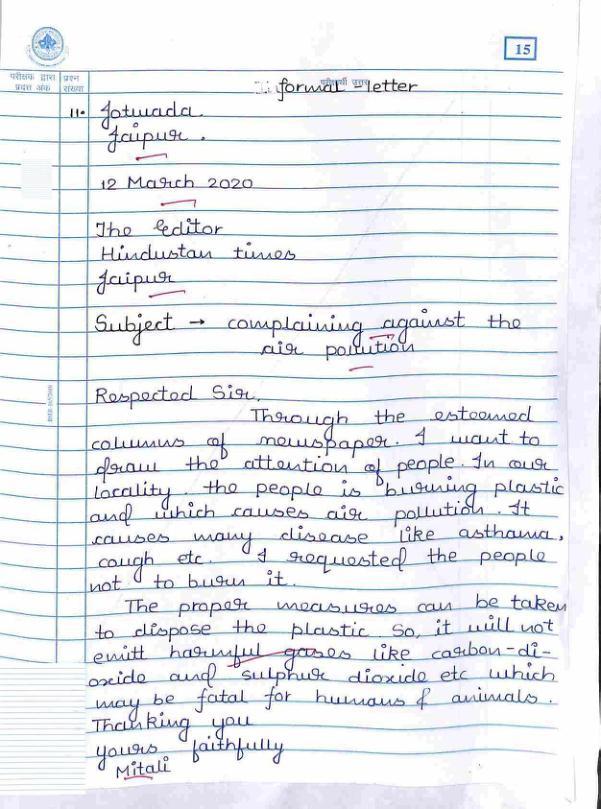 15
परीक्षक द्वारा प्रदत्त अंक
प्रश्न संख्या
formal letter
11. Jotwada.
Jaipur.
12 March 2020
The Editor
Hindustan times
Jaipur
Subject → complaining against the
air pollution
Respected Sir,
Through the esteemed
columns of newspaper. I want to
draw the attention of people. In our
locality. the people is burning plastic
and which causes air pollution. It
causes many disease like asthama,
cough etc. I requested the people
not to burn it.
The proper measures can be taken
to dispose the plastic. So, it will not
emitt harmful gases like carbon-di-
oxide and sulphur dioxide etc which
may be fatal for humans & animals.
Thanking you
yours faithfully
Mitali